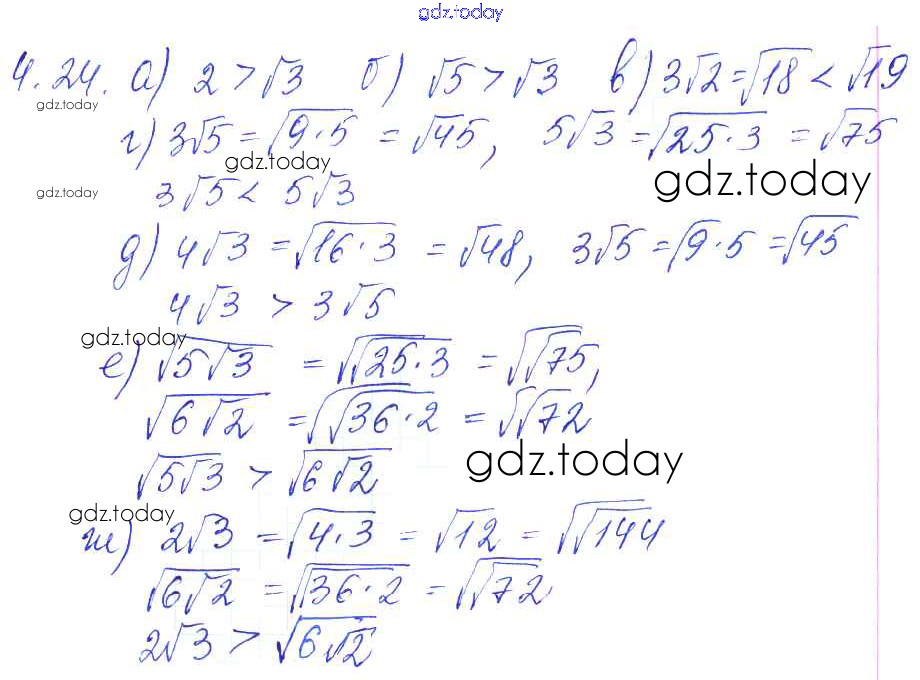 gdz.today
4.24. а) 2 > √3 б) √5 > √3 в) 3√2 = √18 < √19
gdz.today
г) 3√5 = √(9·5) = √45, 5√3 = √(25·3) = √75
gdz.today
gdz.today
gdz.today
3√5 < 5√3
д) 4√3 = √(16·3) = √48, 3√5 = √9·5 = √45
4√3 > 3√5
gdz.today
е) √(5√3) = √(√(25·3)) = √(√75),
√(6√2) = √(√(36·2)) = √(√72)
gdz.today
√(5√3) > √(6√2)
gdz.today
ж) 2√3 = √(4·3) = √12 = √(√144)
√(6√2) = √(√(36·2)) = √(√72)
2√3 > √(6√2)